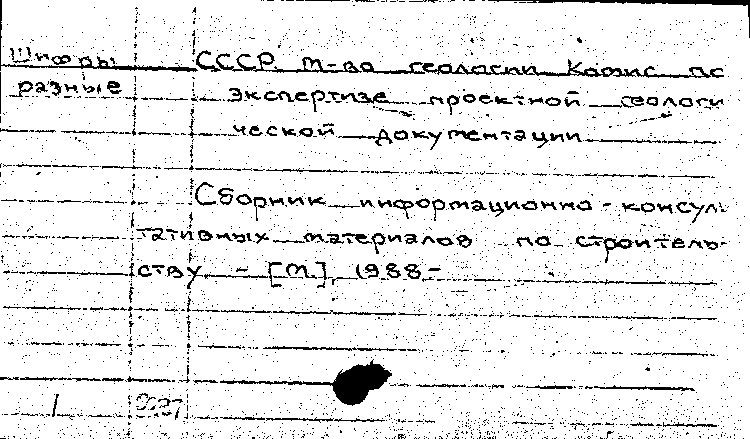 Шифры СССР. М-во геологии. Комис. по
разные экспертизе проектной геологи
ческой документации.
Сборник информационно-консуль
тативных материалов по строитель-
ству. - [М.], 1988-
1